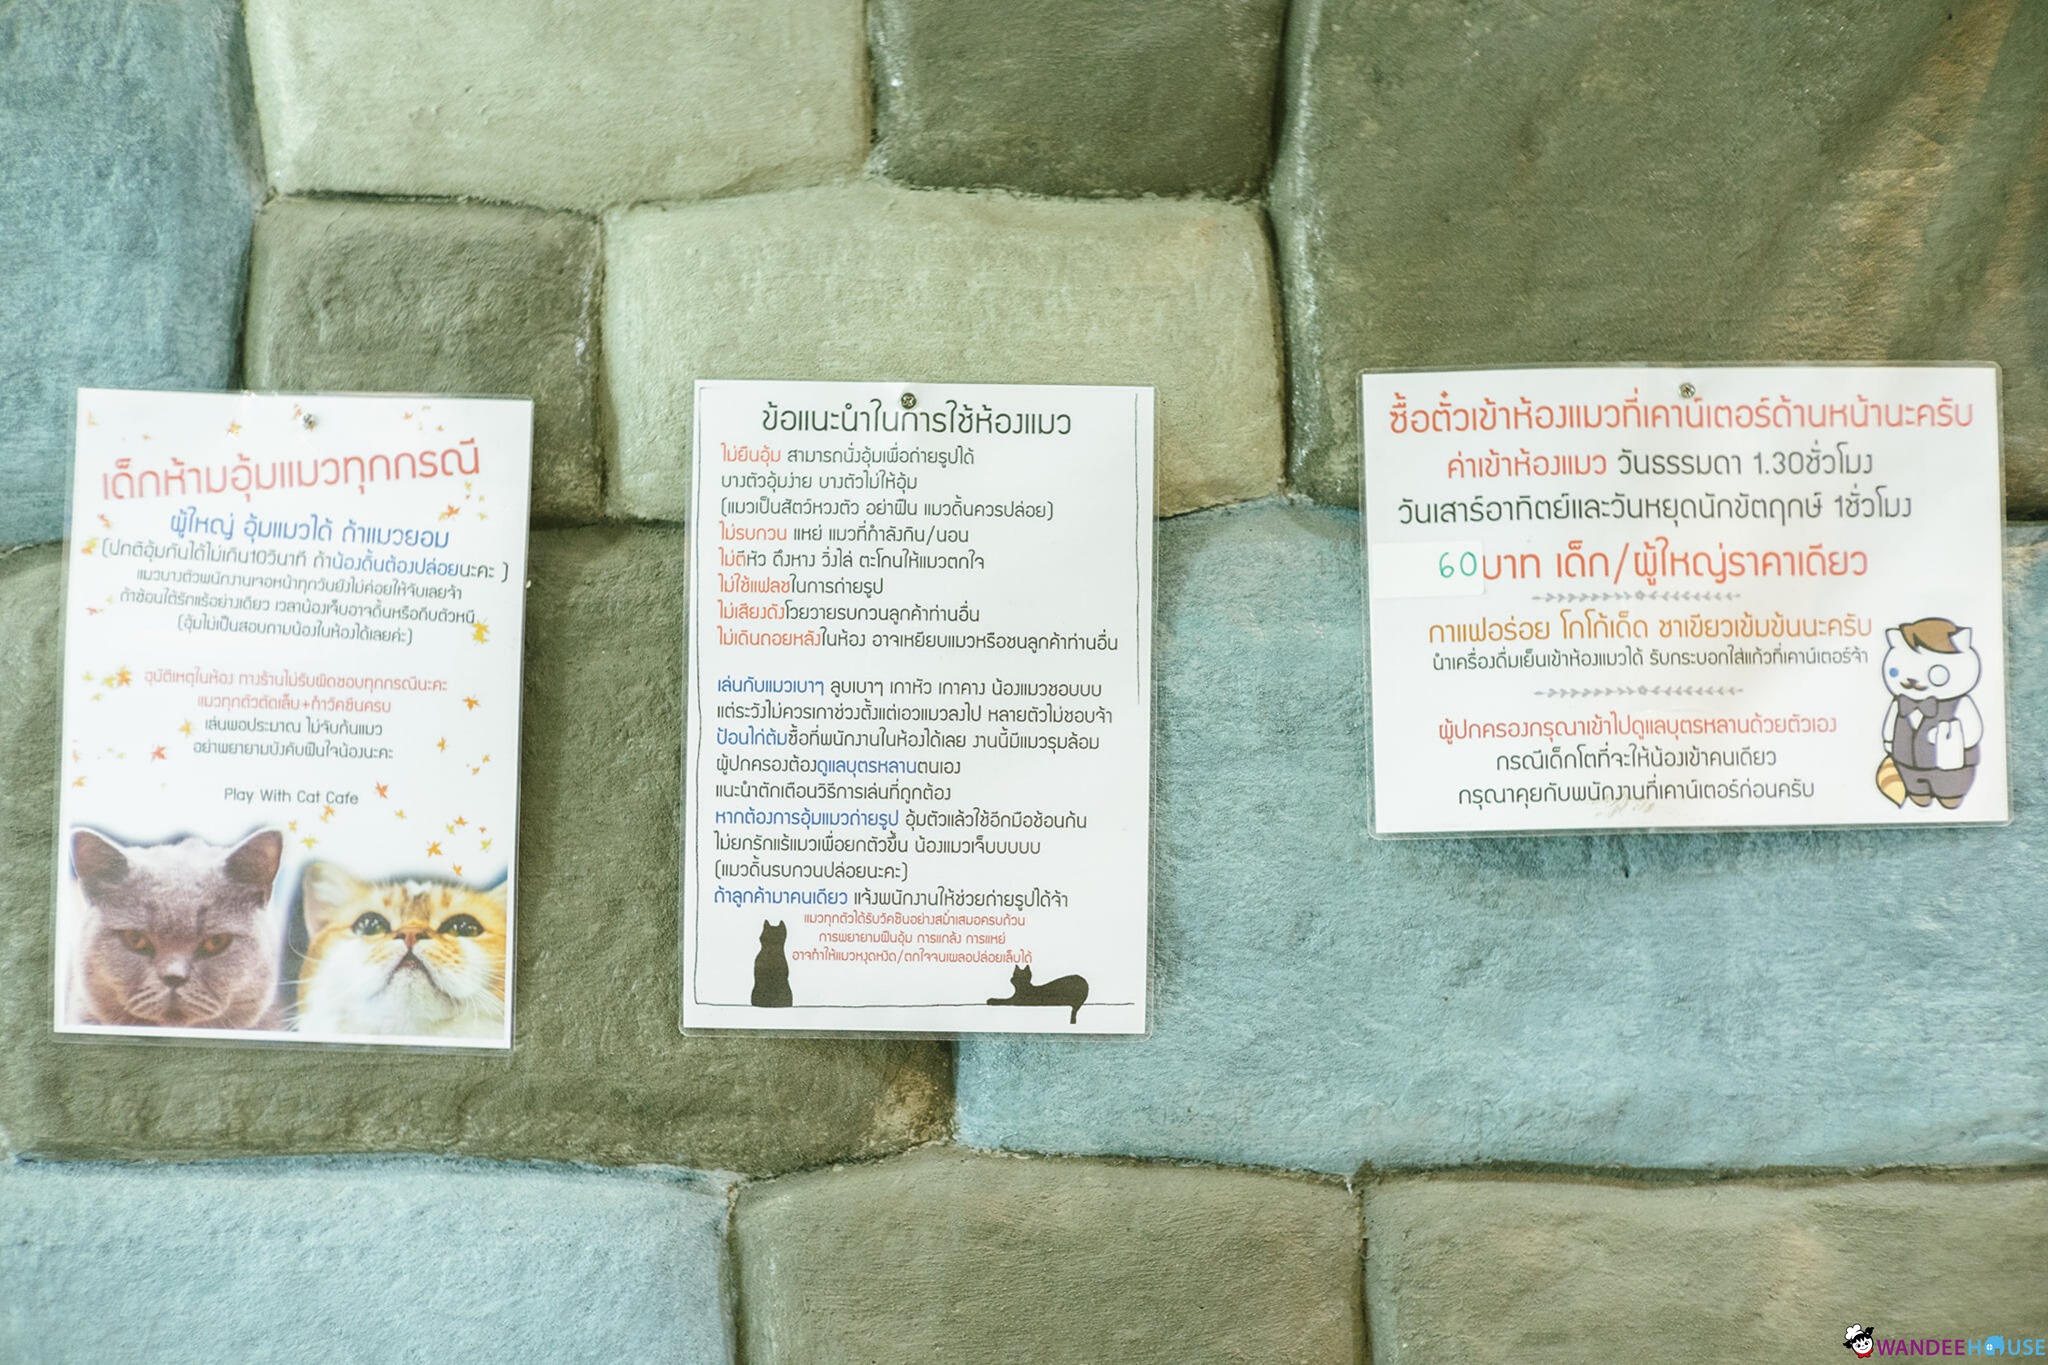 เด็กห้ามอุ้มแมวทุกกรณี
ผู้ใหญ่ อุ้มแมวได้ ถ้าแมวยอม
(ปกติอุ้มกันได้ไม่เกิน10วินาที ถ้าน้องดิ้นต้องปล่อยนะคะ )
แมวบางตัวพนักงานเจอหน้าทุกวันยังไม่ค่อยให้จับเลยจ้า
ถ้าช้อนใต้รักแร้อย่างเดียว เวลาน้องเจ็บอาจดิ้นหรือถีบตัวหนี
(อุ้มไม่เป็นสอบถามน้องในห้องได้เลยค่ะ)
อุบัติเหตุในห้อง ทางร้านไม่รับผิดชอบทุกกรณีนะคะ
แมวทุกตัวตัดเล็บ+ทำวัคซีนครบ
เล่นพอประมาณ ไม่จับก้นแมว
อย่าพยายามบังคับฝืนใจน้องนะคะ
Play With Cat Cafe
ข้อแนะนำในการใช้ห้องแมว
ไม่ยืนอุ้ม สามารถนั่งอุ้มเพื่อถ่ายรูปได้
บางตัวอุ้มง่าย บางตัวไม่ให้อุ้ม
(แมวเป็นสัตว์หวงตัว อย่าฝืน แมวดิ้นควรปล่อย)
ไม่รบกวน แหย่ แมวที่กำลังกิน/นอน
ไม่ตีหัว ดึงหาง วิ่งไล่ ตะโกนให้แมวตกใจ
ไม่ใช้แฟลชในการถ่ายรูป
ไม่เสียงดังโวยวายรบกวนลูกค้าท่านอื่น
ไม่เดินถอยหลังในห้อง อาจเหยียบแมวหรือชนลูกค้าท่านอื่น
เล่นกับแมวเบาๆ ลูบเบาๆ เกาหัว เกาคาง น้องแมวชอบบบ
แต่ระวังไม่ควรเกาช่วงตั้งแต่เอวแมวลงไป หลายตัวไม่ชอบจ้า
ป้อนไก่ต้มซื้อที่พนักงานในห้องได้เลย งานนี้มีแมวรุมล้อม
ผู้ปกครองต้องดูแลบุตรหลานตนเอง
แนะนำตักเตือนวิธีการเล่นที่ถูกต้อง
หากต้องการอุ้มแมวถ่ายรูป อุ้มตัวแล้วใช้อีกมือช้อนก้น
ไม่ยกรักแร้แมวเพื่อยกตัวขึ้น น้องแมวเจ็บบบบบ
(แมวดิ้นรบกวนปล่อยนะคะ)
ถ้าลูกค้ามาคนเดียว แจ้งพนักงานให้ช่วยถ่ายรูปได้จ้า
แมวทุกตัวได้รับวัคซีนอย่างสม่ำเสมอครบถ้วน
การพยายามฝืนอุ้ม การแกล้ง การแหย่
อาจทำให้แมวหงุดหงิด/ตกใจจนเผลอปล่อยเล็บได้
ซื้อตั๋วเข้าห้องแมวที่เคาน์เตอร์ด้านหน้านะครับ
ค่าเข้าห้องแมว วันธรรมดา 1.30ชั่วโมง
วันเสาร์อาทิตย์และวันหยุดนักขัตฤกษ์ 1ชั่วโมง
60บาท เด็ก/ผู้ใหญ่ราคาเดียว
กาแฟอร่อย โกโก้เด็ด ชาเขียวเข้มข้นนะครับ
นำเครื่องดื่มเย็นเข้าห้องแมวได้ รับกระบอกใส่แก้วที่เคาน์เตอร์จ้า
ผู้ปกครองกรุณาเข้าไปดูแลบุตรหลานด้วยตัวเอง
กรณีเด็กโตที่จะให้น้องเข้าคนเดียว
กรุณาคุยกับพนักงานที่เคาน์เตอร์ก่อนครับ
WANDEEHOUSE